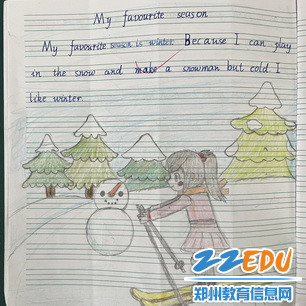 My favourite season
My favourite season is winter. Because I can play
in the snow and make a snowman but cold. I
like winter.
ZZEDU
郑州教育信息网